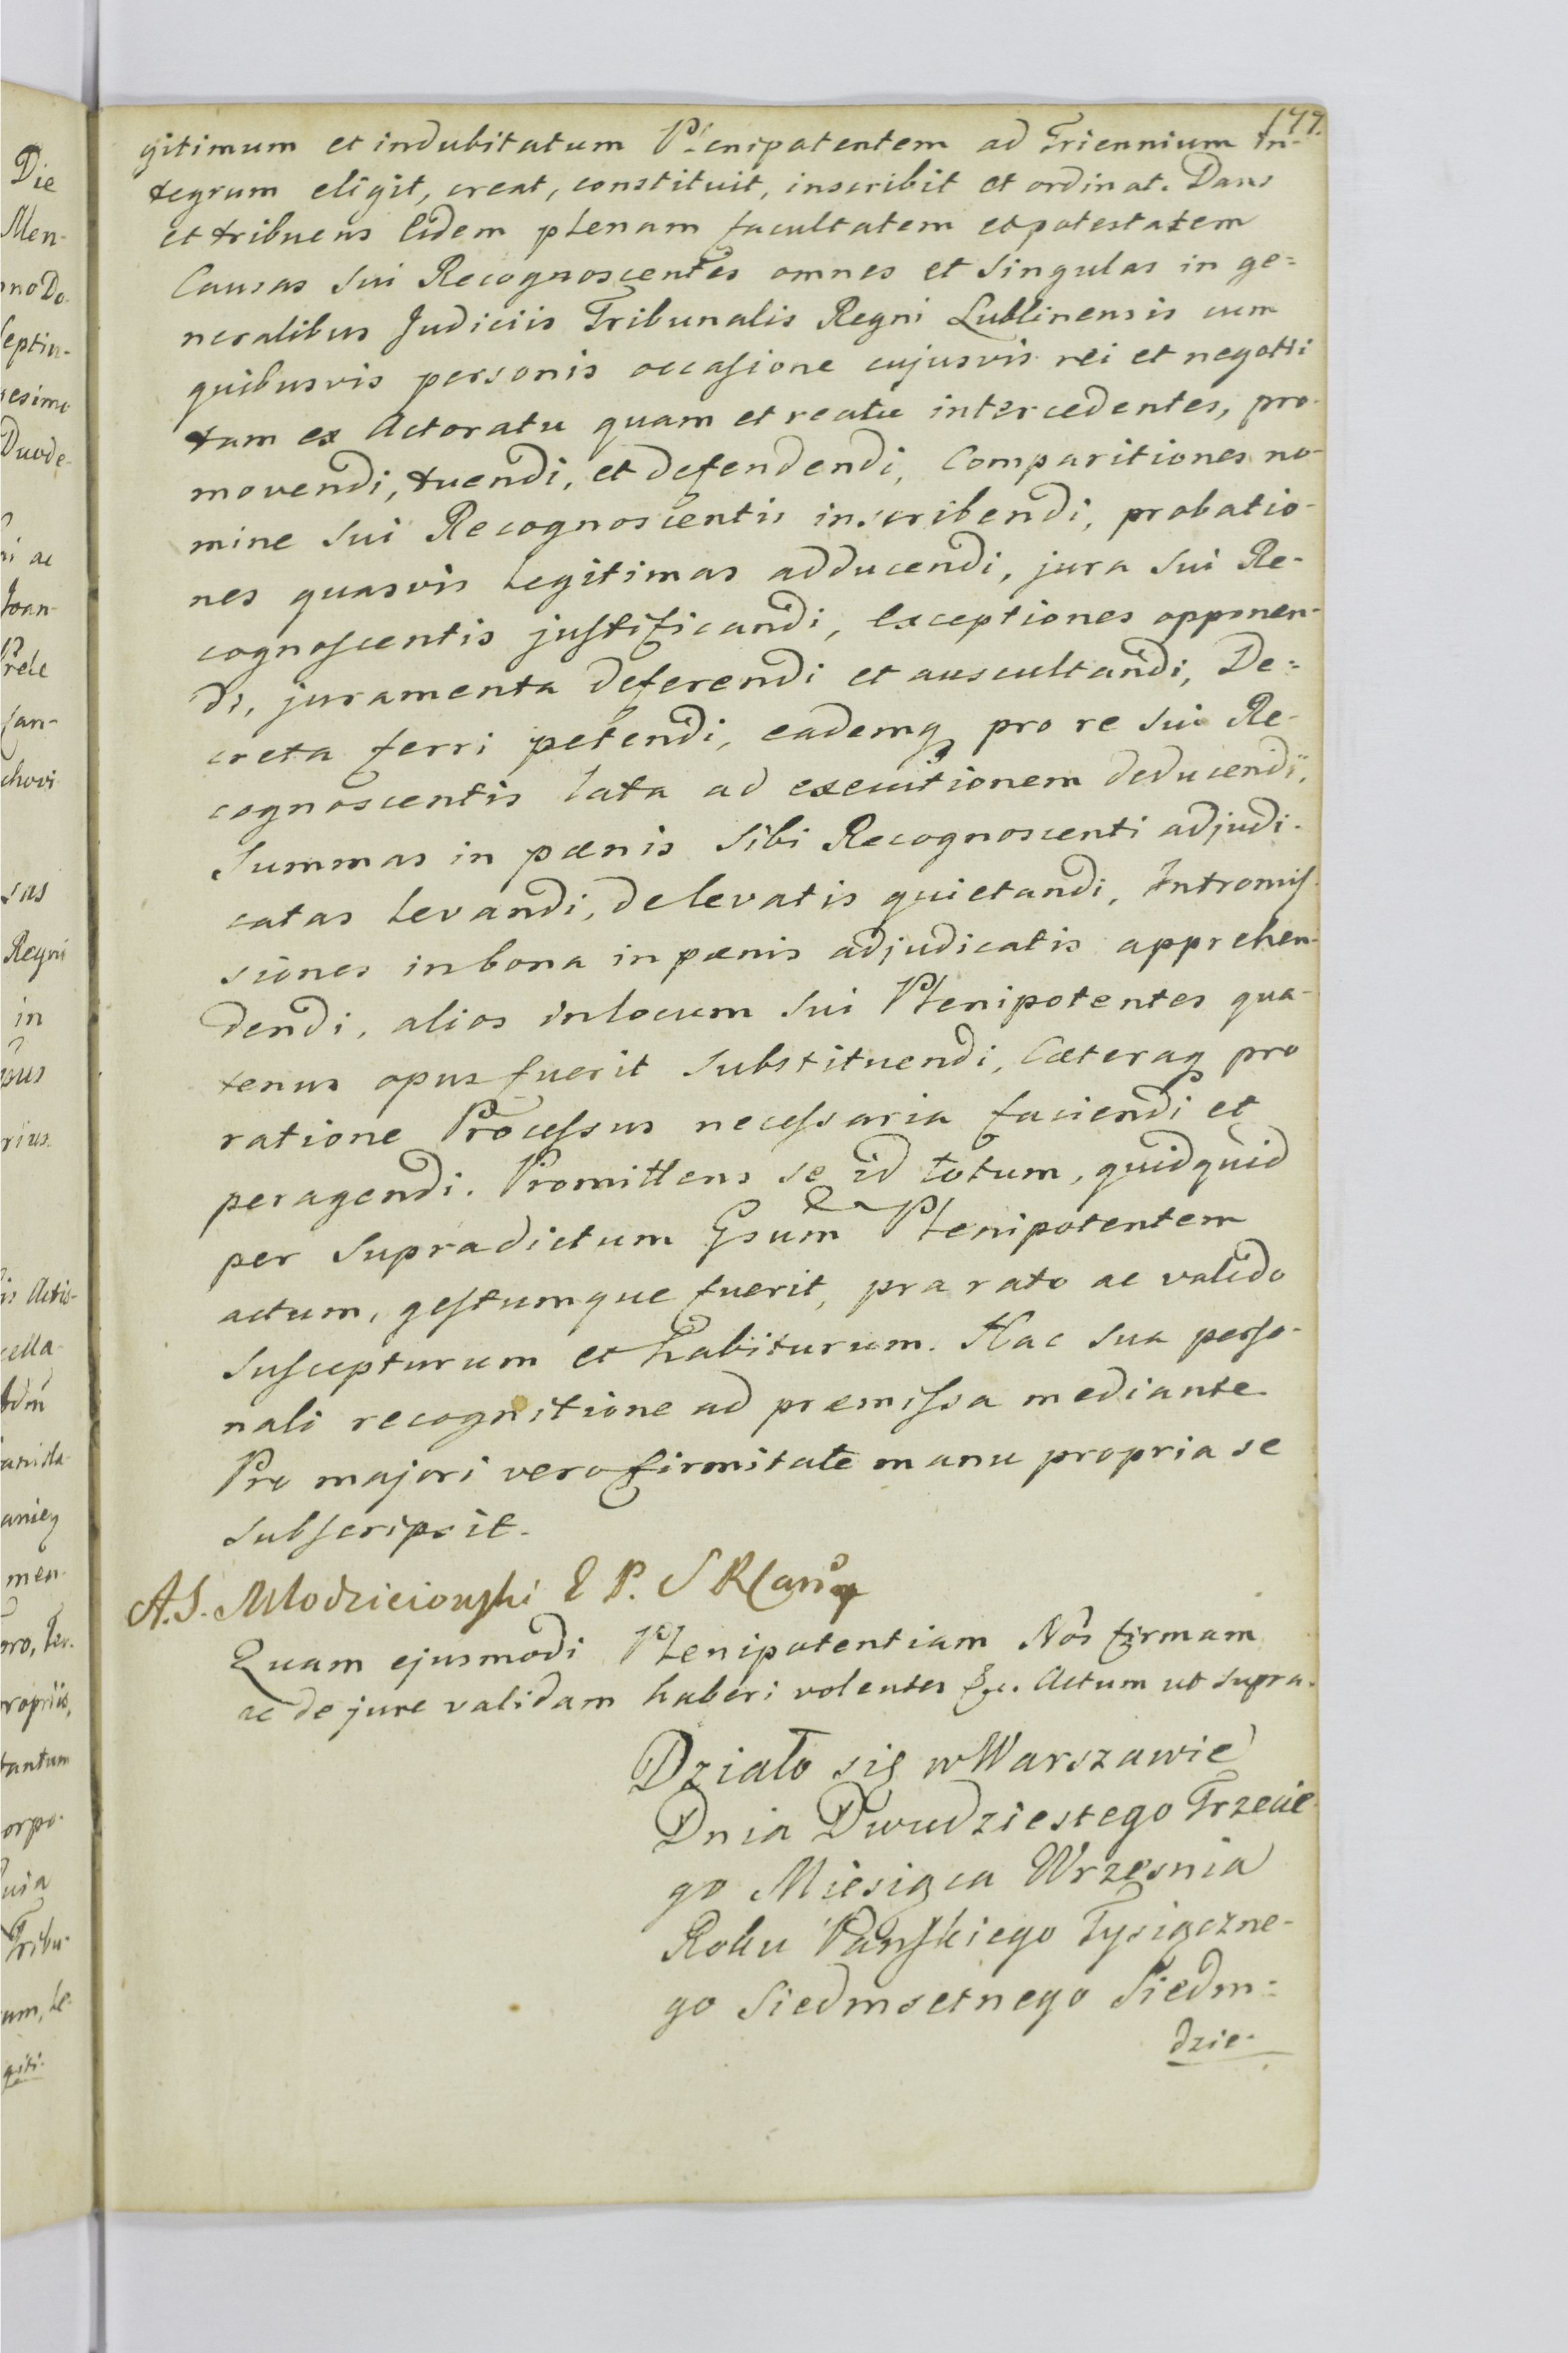 177.
gitimum et indubitatum Plenipotentem ad Triennium in-
tegrum eligit, creat, constituit, inscribit et ordinat. Dans
et tribuens Eidem plenam facultatem et potestatem
Causas sui Recognoscentes omnes et singulas in ge=
neralibus Judiciis Tribunalis Regni Lublinensis cum
quibusvis personis occasione cujusvis rei et negotii
tam ex Actoratu quam et reatu intercedentes, pro-
movendi, tuendi, et defendendi, Comparitiones no-
mine sui Recognoscentis inscribendi, probatio-
nes quasvis legitimas adducendi, jura sui Re-
cognoscentis justificandi, exceptiones opponen-
di, juramenta deferendi et auscultandi, De=
creta ferri petendi, eademq pro re sui Re-
cognoscentis lata ad executionem deducendi,
Summas in pænis sibi Recognoscenti adjudi-
catas levandi, de levatis quietandi, Intromis-
siones in bona in pænis adjudicatis apprehen-
dendi, alios in locum sui Plenipotentes qua-
tenus opus fuerit substituendi, Cæteraq pro
ratione Processus necessaria faciendi et
peragendi. Promittens se id totum, quidquid
per supradictum Gsum Plenipotentem
actum, gestumque fuerit, pra rato ac valido
suscepturum et habiturum. Hac sua perso-
nali recognitione ad præmissa mediante
Pro majori vero firmitate manu propria se
subscripsit.
A. S. Młodzieiowski E P. S R
Quam ejusmodi Plenipotentiam Nos firmam
ac de jure validam haberi volentes &c. Actum ut supra.
Działo się w Warszawie
Dnia Dwudziestego Trzecie
go Miesiąca Wrzesnia
Roku Panskiego Tysiączne-
go Siedmsetnego Siedm=
dzie-
Die
Men-
Duode-
ac
Joan-
chovi
Regni
in
Actis-
men-
tantum
Tribu-
giti-